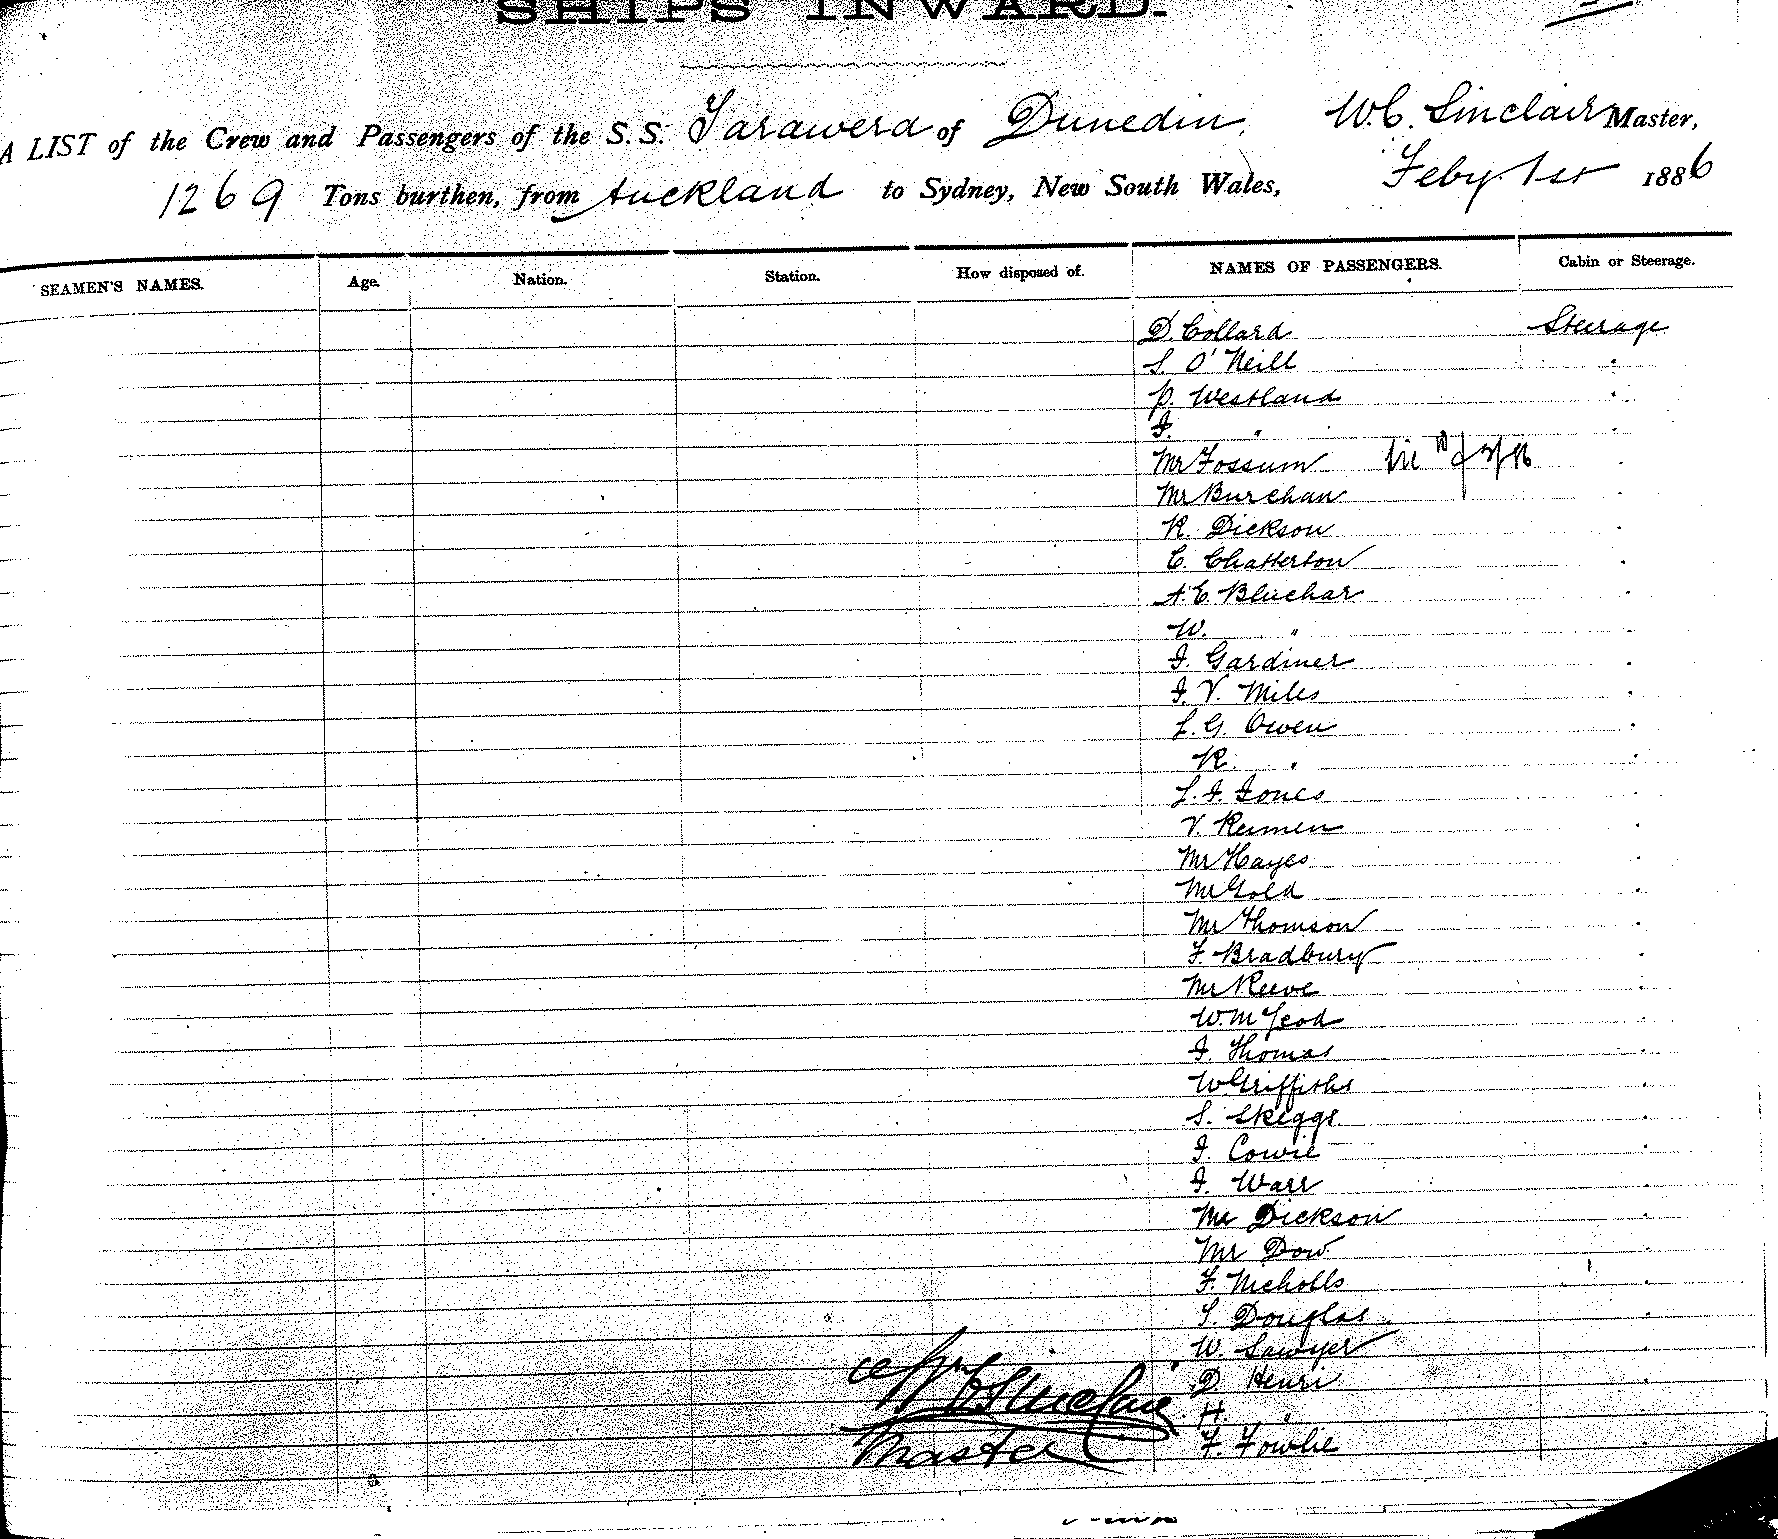 SHIPS INWARD.
A LIST of the Crew and Passengers of the S.S. Tarawera of Dunedin, W.C. Sinclair Master,
1269 Tons burthen, from Auckland to Sydney, New South Wales, Feby. 1st 1886
SEAMEN'S NAMES. Age. Nation. Station. How disposed of. NAMES OF PASSENGERS. Cabin or Steerage.
D. Collard Steerage
S. O'Neill "
P. Westland "
J. " "
Mr Fossum
Mr Burchan
R. Dickson
C. Chatterton
A.E. Bluchar
W. "
J. Gardiner
J. V. Miles
L. G. Owen
R. "
L. J. Jones
V. Reimen
Mr Hayes
Mr Gold
Mr Thomson
F. Bradbury
Mr Reeve
W. McLeod
J. Thomas
W Griffiths
S. Skeggs
J. Cowie
J. Warr
Mr Dickson
Mr Dow
F. Nicholls
S. Douglas
W. Sawyer
D. Henri
H "
F. Fowlie
Sinclair
Master